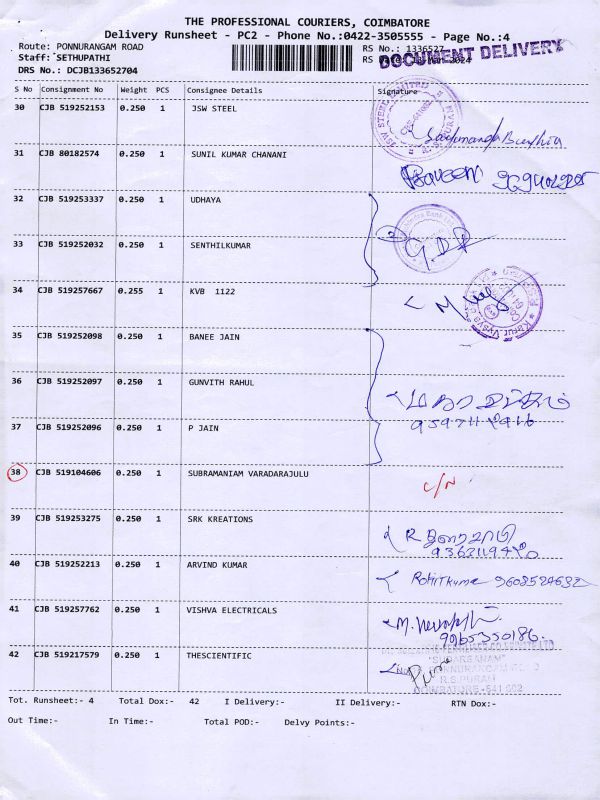 THE PROFESSIONAL COURIERS, COIMBATORE
Delivery Runsheet - PC2 - Phone No.:0422-3505555 - Page No.:4
Route: PONNURANGAM ROAD
RS No.: 1336527
Staff: SETHUPATHI
DOCUMENT DELIVERY
DRS No.: DCJB133652704
S No Consignment No Weight PCS Consignee Details Signature
30 CJB 519252153 0.250 1 JSW STEEL
31 CJB 80182574 0.250 1 SUNIL KUMAR CHANANI
Praveen
32 CJB 519253337 0.250 1 UDHAYA
33 CJB 519252032 0.250 1 SENTHILKUMAR
34 CJB 519257667 0.255 1 KVB 1122
35 CJB 519252098 0.250 1 BANEE JAIN
36 CJB 519252097 0.250 1 GUNVITH RAHUL
37 CJB 519252096 0.250 1 P JAIN
38 CJB 519104606 0.250 1 SUBRAMANIAM VARADARAJULU C/N
39 CJB 519253275 0.250 1 SRK KREATIONS
40 CJB 519252213 0.250 1 ARVIND KUMAR
41 CJB 519257762 0.250 1 VISHVA ELECTRICALS
9965350186.
42 CJB 519217579 0.250 1 THESCIENTIFIC
R.S.PURAM
COIMBATORE-641 002
Tot. Runsheet:- 4 Total Dox:- 42 I Delivery:- II Delivery:- RTN Dox:-
Out Time:- In Time:- Total POD:- Delvy Points:-